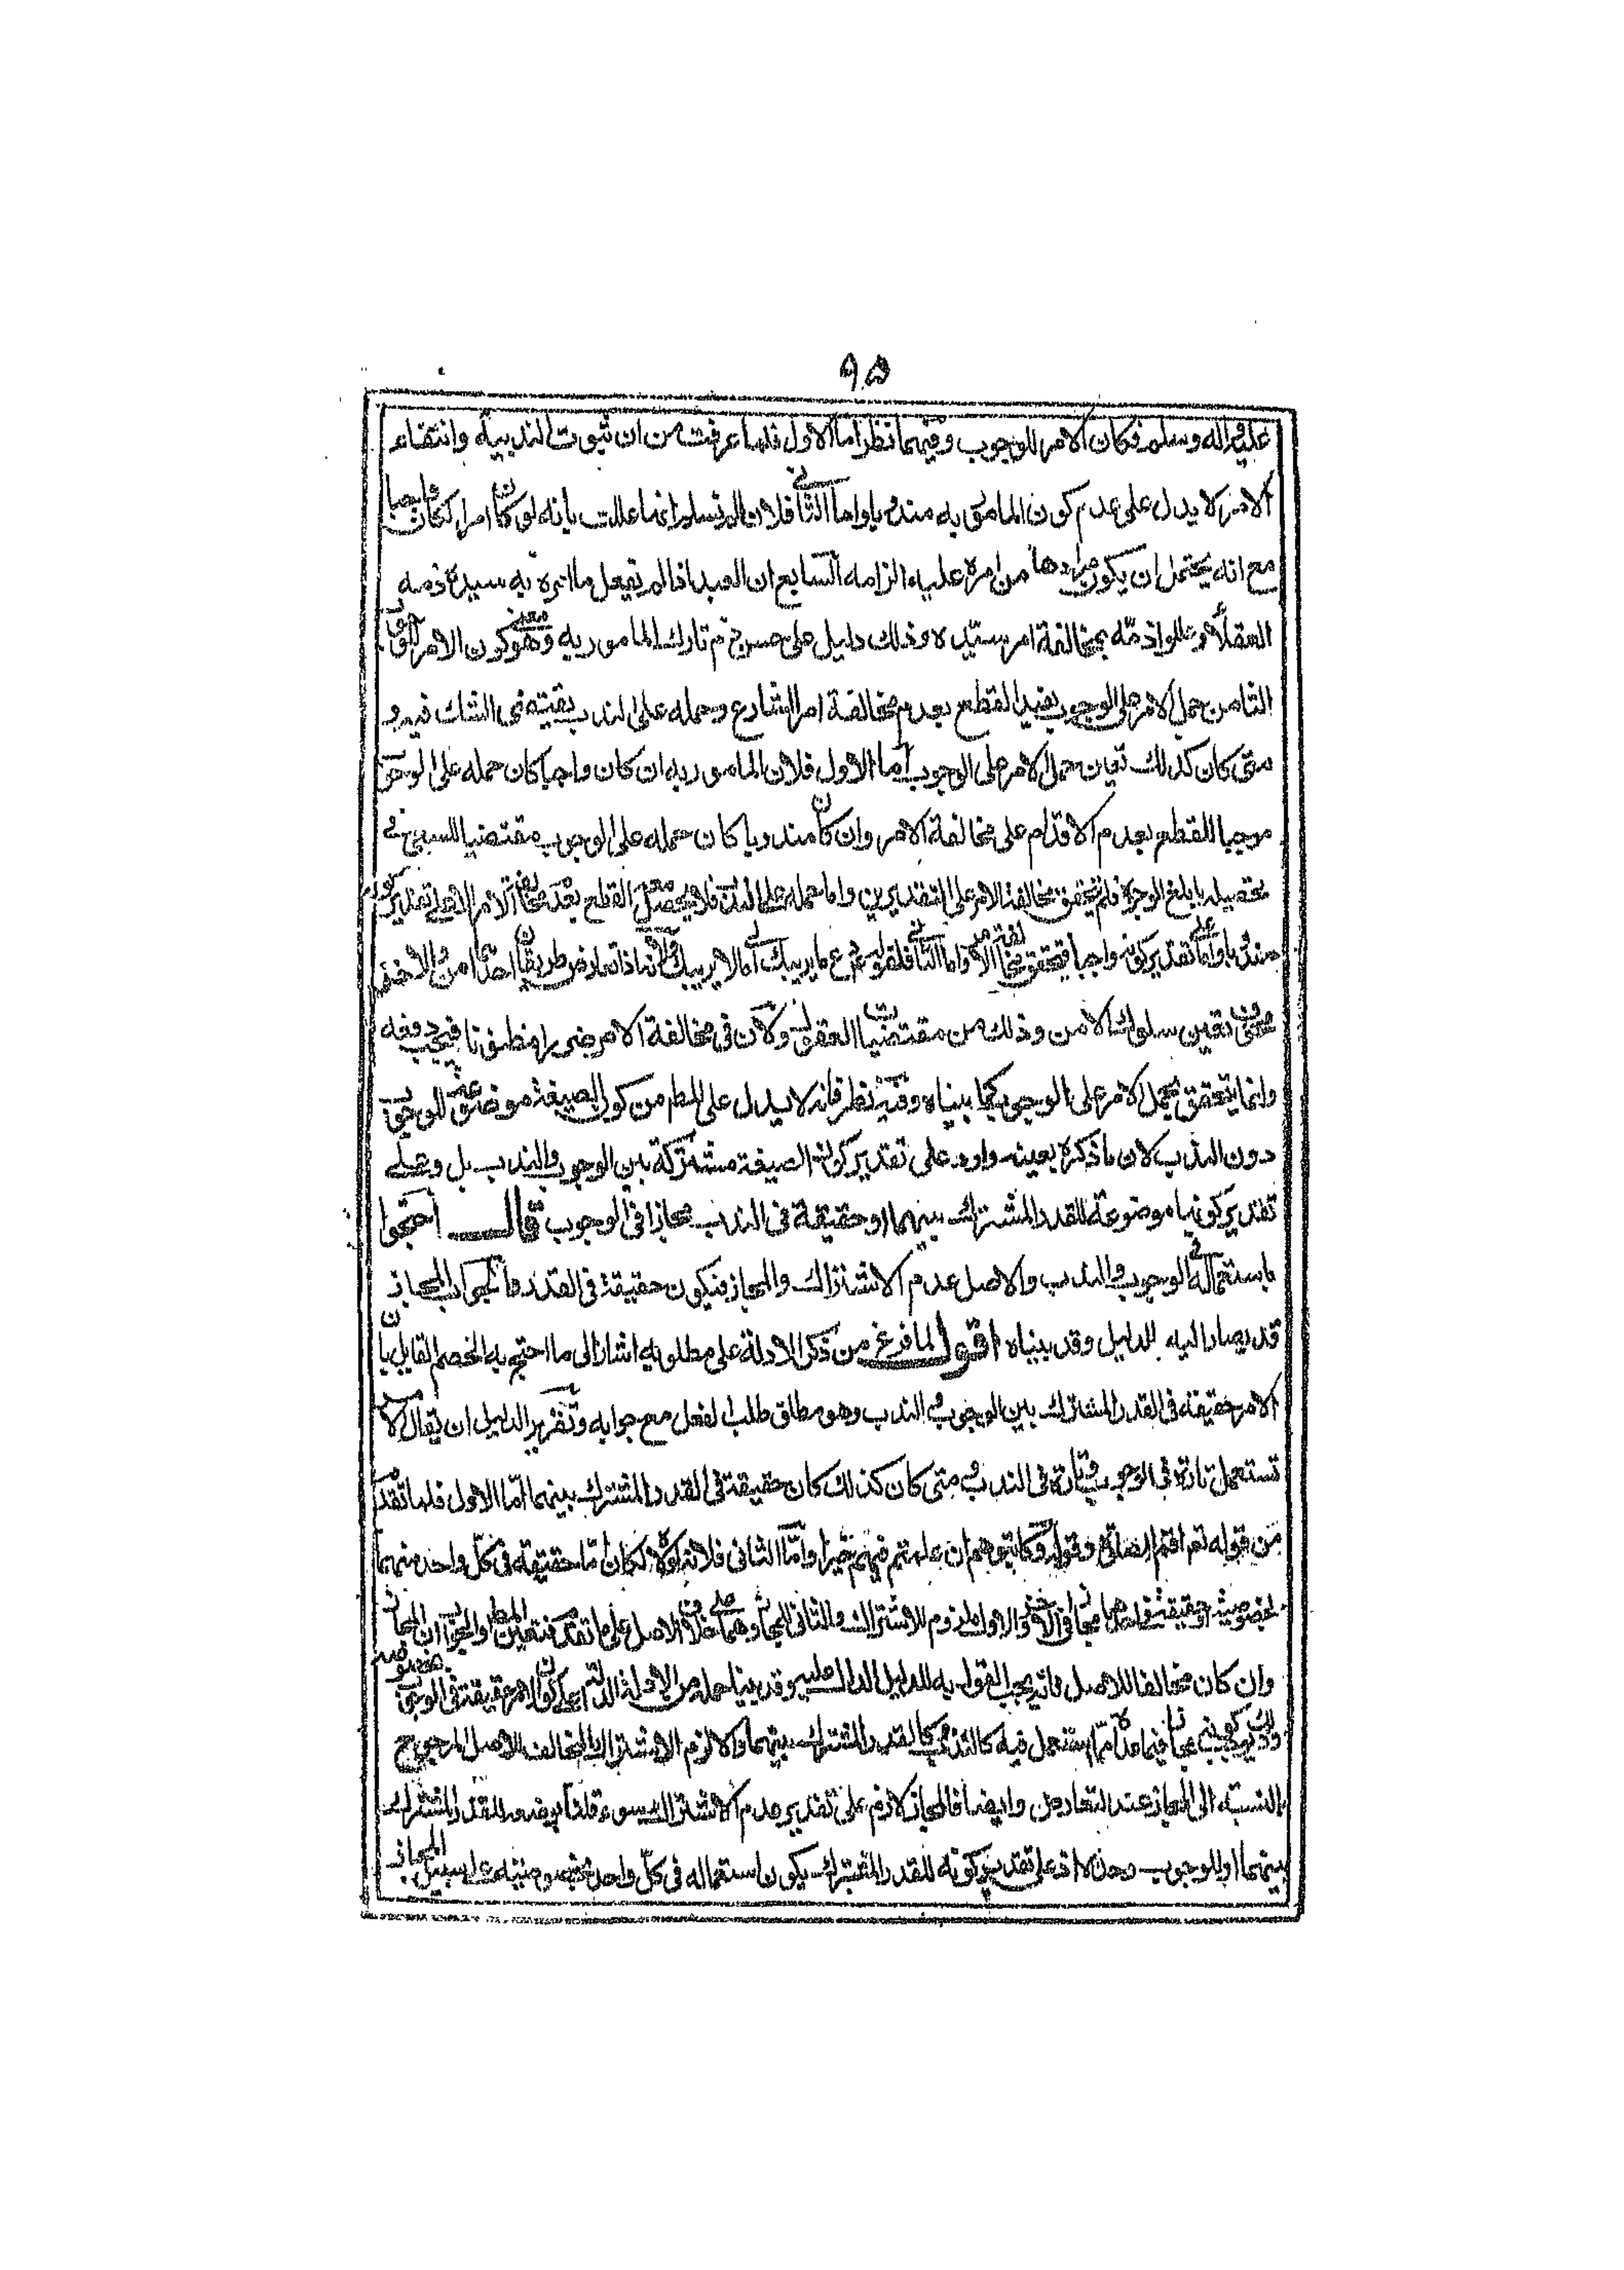 ٩٥
عليه واله وسلم فكان الامر للوجوب وفيهما نظر اما الاول فلما عرفت من ان ثبوت الندبية وانتفاء
الامر لا يدل على عدم كون المامور به مندوبا واما الثاني فلان لا نسلم انها عللت بانه لو كان امرا لكان واجبا
مع انه يحتمل ان يكون مرادها من امره عليه الزامه السابع ان العبد اذا لم يفعل ما امره به سيده ذمه
العقلاء وعللوا ذمه بمخالفة امر سيده وذلك دليل على حسن ذم تارك المامور به وهو معنى كون الامر للوجوب
الثامن حمل الامر على الوجوب يفيد القطع بعدم مخالفة امر الشارع وحمله على الندب يقتضى الشك فيه و
متى كان كذلك تعين حمل الامر على الوجوب اما الاول فلان المامور به ان كان واجبا كان حمله على الوجوب
موجبا للقطع بعدم الاقدام على مخالفة الامر وان كان مندوبا كان حمله على الوجوب مقتضيا للسعي في
تحصيله بابلغ الوجوه فلم يتحقق مخالفة الامر على التقديرين واما حمله على الندب فلا يحصل القطع بعدم مخالفة الامر على تقدير كونه
مندوبا واما على تقدير كونه واجبا فيتحقق مخالفة الامر واما الثاني فلقوله دع ما يريبك الى ما لا يريبك ولانه اذا تعارض طريقان احدهما امن والاخر
مخوف تعين سلوك الامن وذلك من مقتضيات العقول ولان في مخالفة الامر ضررا مظنونا فيجب دفعه
وانما يتحقق بحمل الامر على الوجوب كما بيناه وفيه نظر فانه لا يدل على المط من كون الصيغة موضوعة للوجوب
دون الندب لان ما ذكره بعينه وارد على تقدير كون الصيغة مشتركة بين الوجوب والندب بل وعلى
تقدير كونها موضوعة للقدر المشترك بينهما او حقيقة في الندب مجازا في الوجوب قال احتجوا
باستعماله في الوجوب والندب والاصل عدم الاشتراك والمجاز فيكون حقيقة في القدر والجواب المجاز
قد يصار اليه للدليل وقد بيناه اقول لما فرغ من ذكر الادلة على مطلوبه اشار الى ما احتج به الخصم القايل بان
الامر حقيقة في القدر المشترك بين الوجوب والندب وهو مطلق طلب الفعل مع جوابه وتقرير الدليل ان يقال الامر
تستعمل تارة في الوجوب وتارة في الندب ومتى كان كذلك كان حقيقة في القدر المشترك بينهما اما الاول فلما تقدم
من قوله تعم اقم الصلوة وقوله فكاتبوهم ان علمتم فيهم خيرا واما الثاني فلانه لولاه لكان اما حقيقة في كل واحد منهما
بخصوصيته او حقيقة في احدهما مجازا في الاخر والاول ملزوم للاشتراك والثاني للمجاز وهما على خلاف الاصل على ما تقدم فتعين المط والجواب ان المجاز
وان كان مخالفا للاصل فانه يجب القول به للدليل الدال عليه وقد بينا جملة من الادلة الدالة على كون الامر حقيقة في الوجوب بخصوصه
وذلك يوجب كونه مجازا فيما عداه مما استعمل فيه كالندب وكالقدر المشترك بينهما والا لزم الاشتراك المخالف للاصل المرجوح
بالنسبة الى المجاز عند التعارض وايضا فالمجاز لازم على تقدير عدم الاشتراك سوء قلنا بوضعه للقدر المشترك
بينهما او للوجوب وحده لان على تقدير كونه للقدر المشترك يكون استعماله في كل واحد بخصوصيته على سبيل المجاز